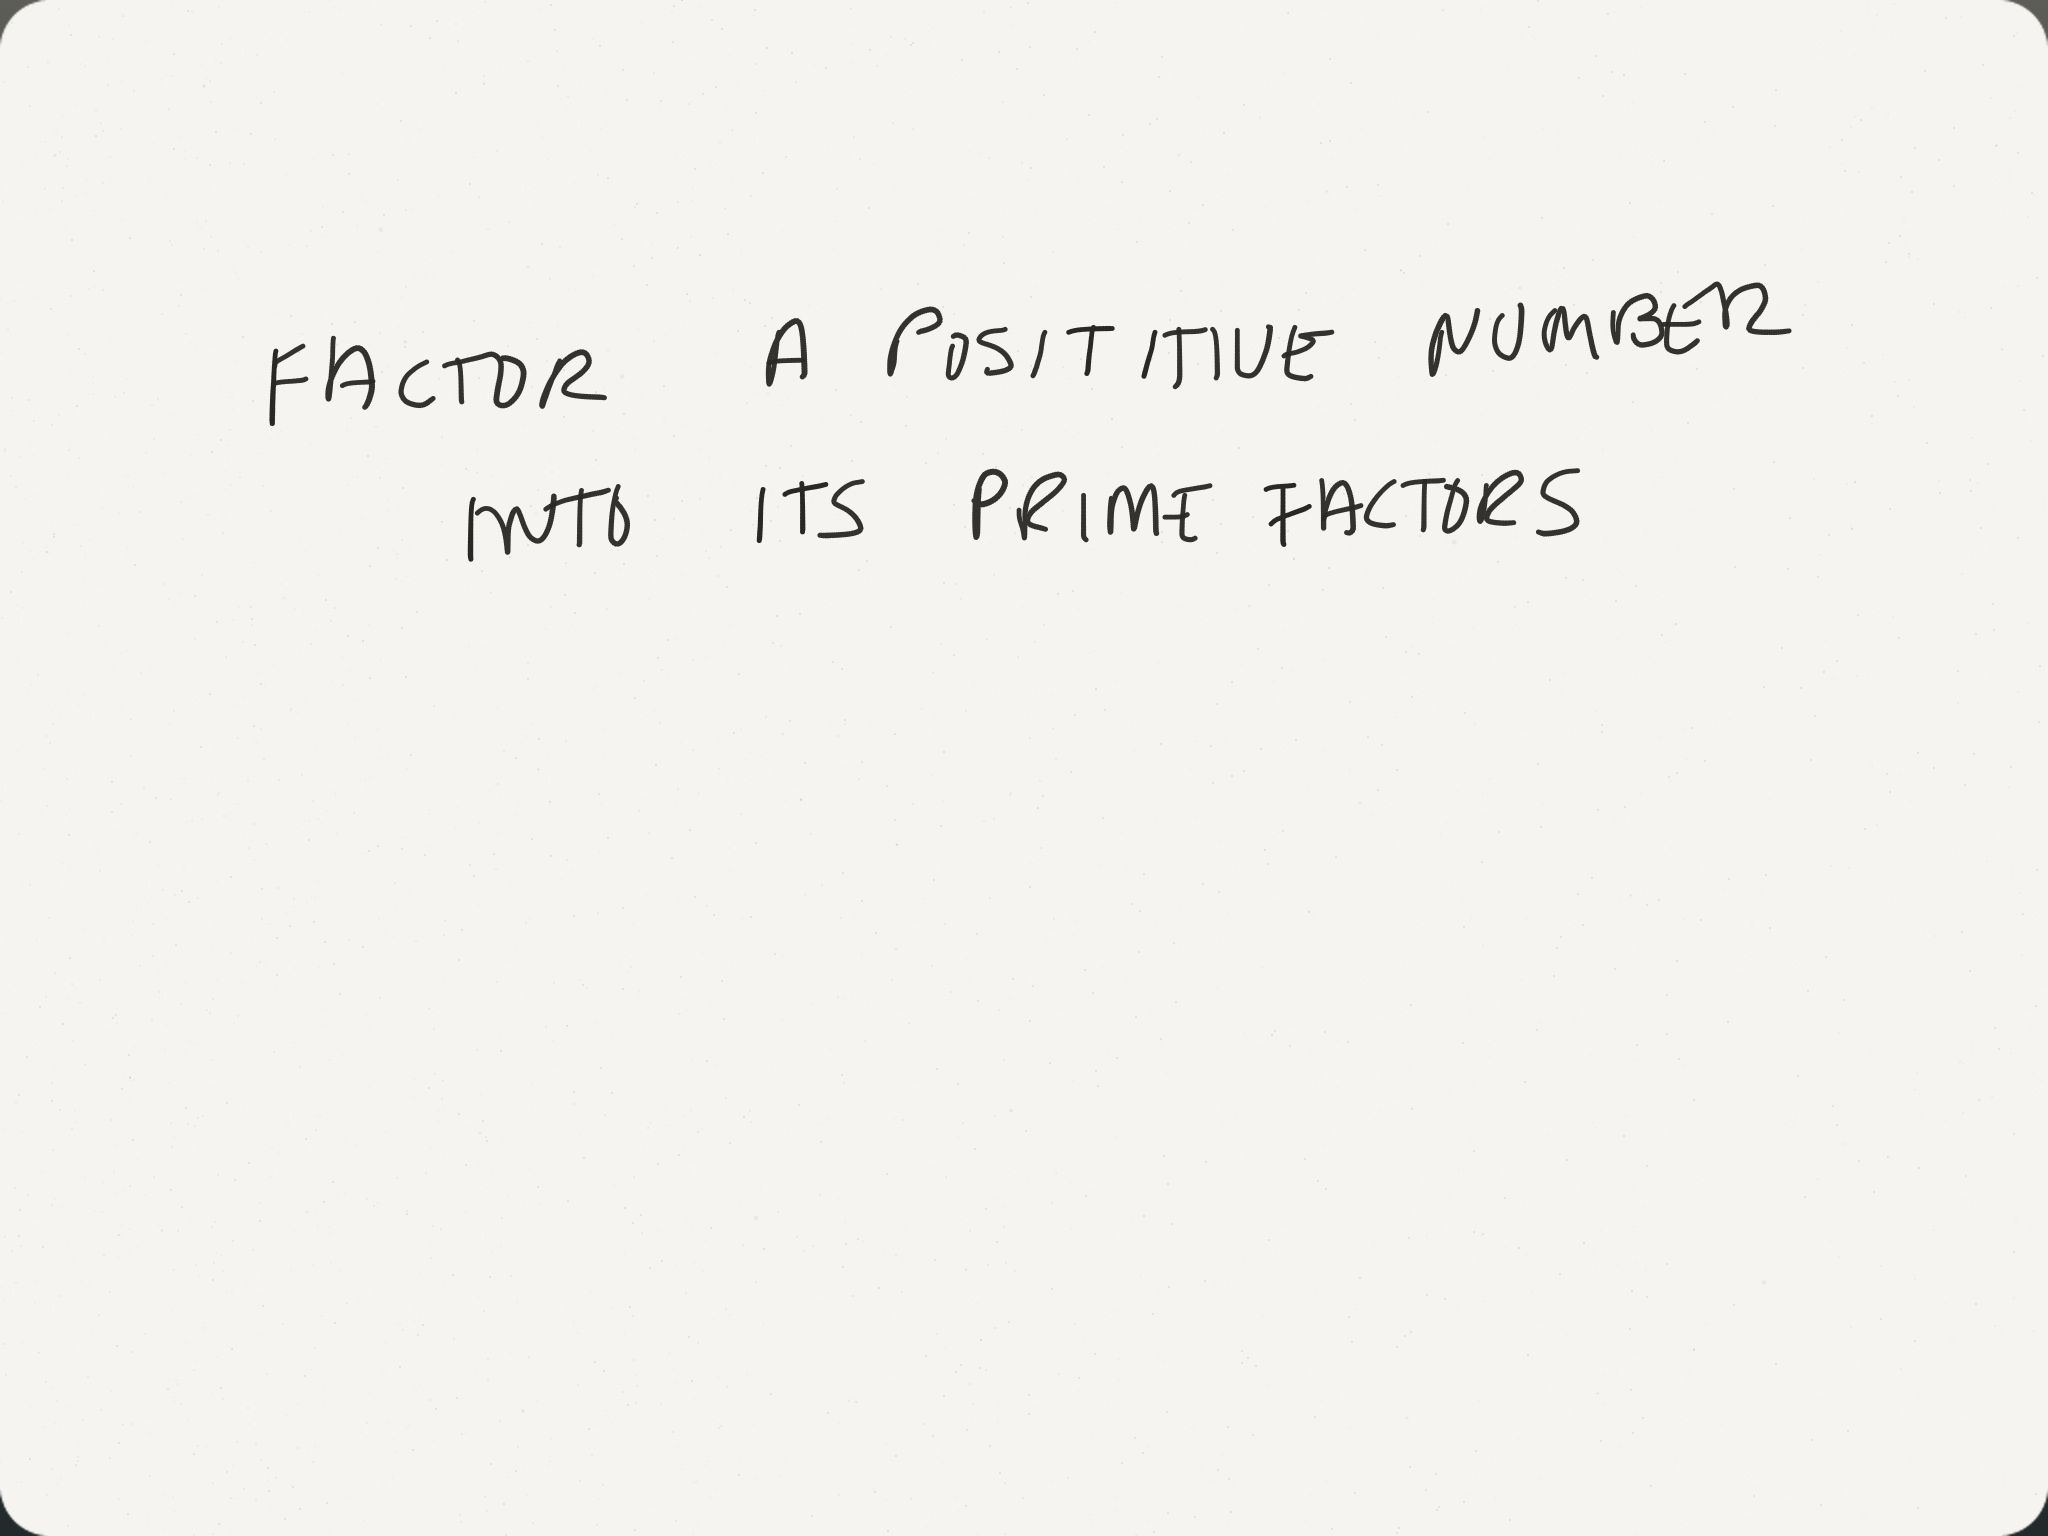 FACTOR A POSITITIVE NUMBER
INTO ITS PRIME FACTORS